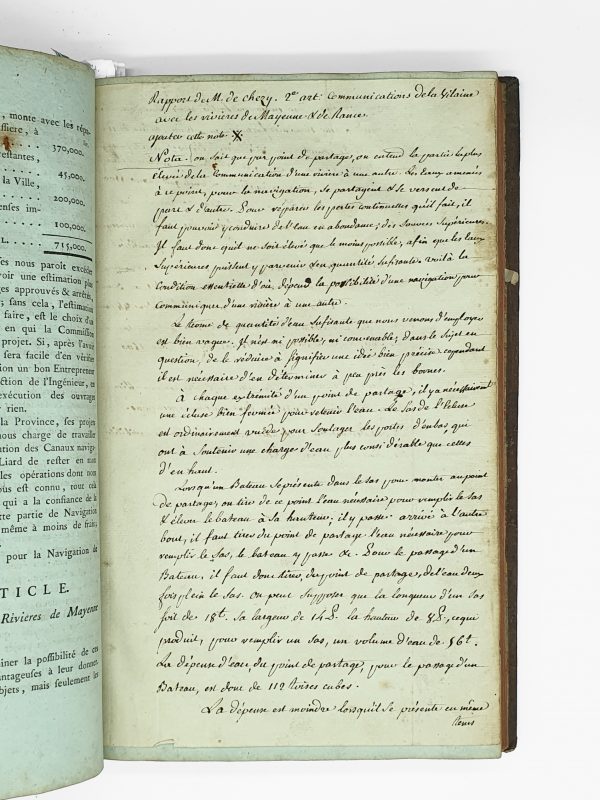 , monte avec les répa-
ssiere, à
370,000.
estantes,
45,000.
la Ville,
200,000.
enses im-
100,000.
L. . . . . 715,000.
es nous paroît excéder
voir une estimation plus
ges approuvés & arrêtés,
, sans cela, l'estimation
faire, est le choix d'un
en qui la Commission
projet. Si, après l'avoir
sera facile d'en vérifier
tion un bon Entrepreneur
ction de l'Ingénieur, en
exécution des ouvrages
r rien.
la Province, ses projets
nous charge de travailler
tion des Canaux navig-
Liard de rester en mon
les opérations dont nom
ous est connu, tout cela
qui a la confiance de la
tte partie de Navigation
même à moins de frais,
pour la Navigation de
TICLE.
Rivieres de Mayenne
iner la possibilité de ces
antageuses à leur donner.
bjets, mais seulement les
Rapport de M. de chezy. 2e. art. Communications de la Vilaine
avec les rivières de Mayenne & de Rance.
ajouter cette note
Nota. on sait que par point de partage, on entend la partie la plus
élevée de la Communication d'une rivière à une autre. Les Eaux amenées
à ce point, pour la navigation, se partagent & se versent de
part & d'autre. Pour réparer les pertes continuelles qu'il fait, il
faut pouvoir y conduire de l'eau en abondance, des Sources Supérieures.
Il faut donc qu'il ne soit élevé que le moins possible, afin que les Eaux
Supérieures puissent y parvenir & en quantité sufisante. voilà la
Condition essentielle d'où dépend la possibilité d'une navigation pour
communiquer d'une rivière à une autre.
Le terme de quantité d'eau Sufisante que nous venons d'employer
est bien vague. Il n'est ni possible, ni convenable, dans le Sujet en
question, de le réduire à signifier une idée bien précise, cependant
il est nécessaire d'en déterminer à peu près les bornes.
A chaque extrémité d'un point de partage, il y a nécessairement
une écluse bien fermée pour retenir l'eau. Le Sas de l'Ecluse
est ordinairement vuide pour Soulager les portes d'enbas qui
ont à Soutenir une charge d'eau plus considérable que celles
d'en haut.
Lorsqu'un Bateau se présente dans le sas pour monter au point
de partage, on tire de ce point l'eau nécessaire pour remplir le Sas
& élever le bateau à Sa hauteur; il y passe. arrivé à l'autre
bout, il faut tirer du point de partage l'eau nécessaire pour
remplir le Sas, le bateau y passe &c. Pour le passage d'un
Bateau, il faut donc tirer, du point de partage, de l'eau deux
fois plein le Sas. On peut Supposer que la longueur d'un sas
soit de 18t. Sa largeur de 14 P. la hauteur de 8 P., ce qui
produit, pour remplir un Sas, un volume d'eau de 56t.
La dépense d'eau, du point de partage, pour le passage d'un
Bateau, est donc de 112 toises cubes.
La dépense est moindre lorsqu'il se présente en même
tems